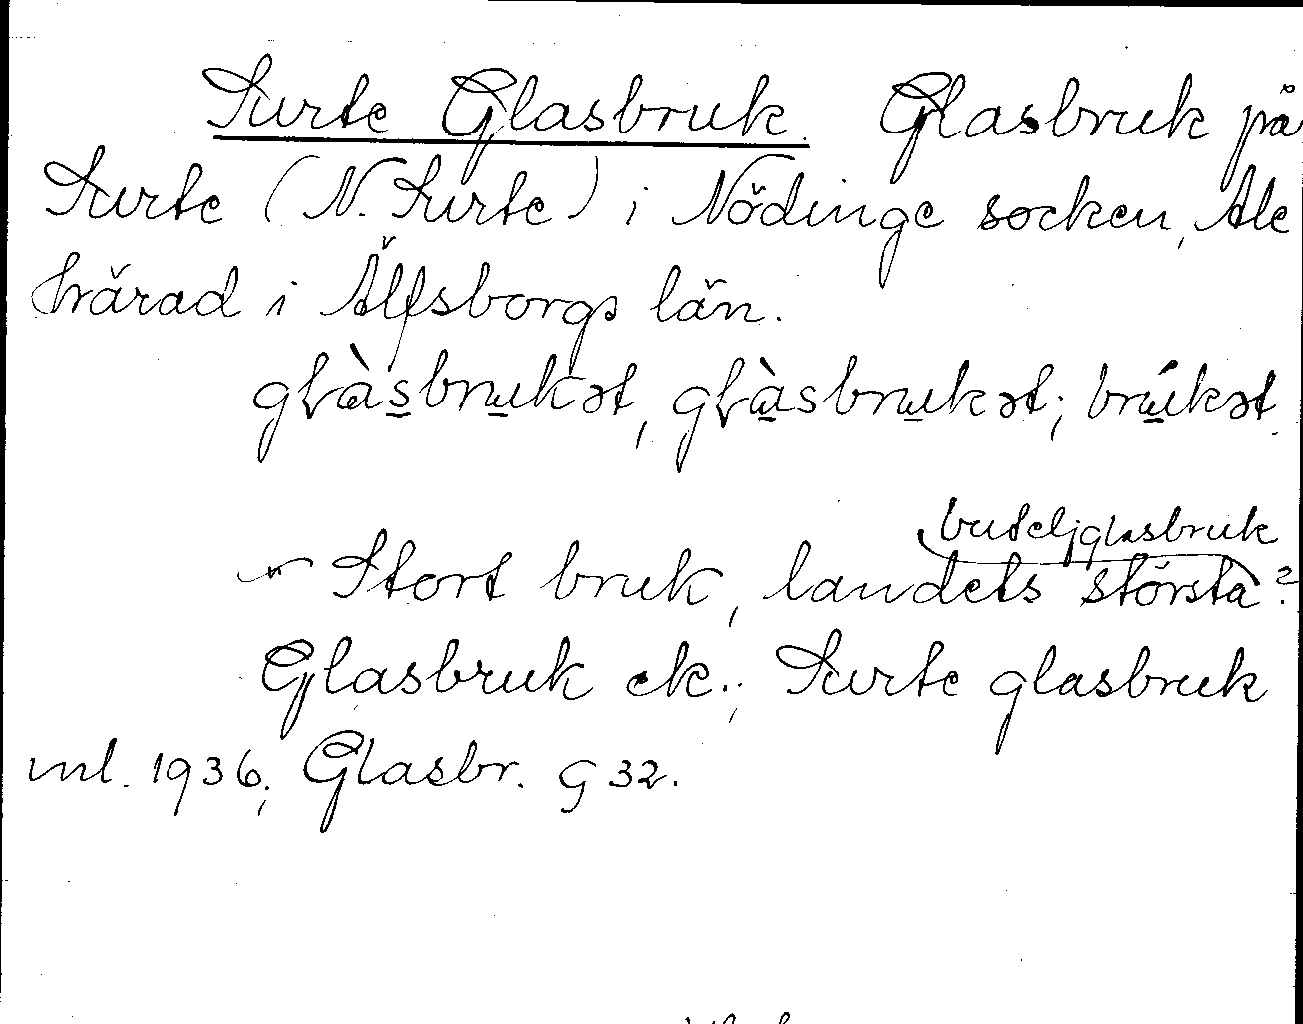 Surte Glasbruk. Glasbruk på
Surte (N. Surte) i Nödinge socken, Ale
härad i Älfsborgs län.
glàsbrukət, glàsbrukət; brúkət.
buteljglasbruk
Stort bruk, landets största?
Glasbruk ek.; Surte glasbruk
ml. 1936; Glasbr. G 32.